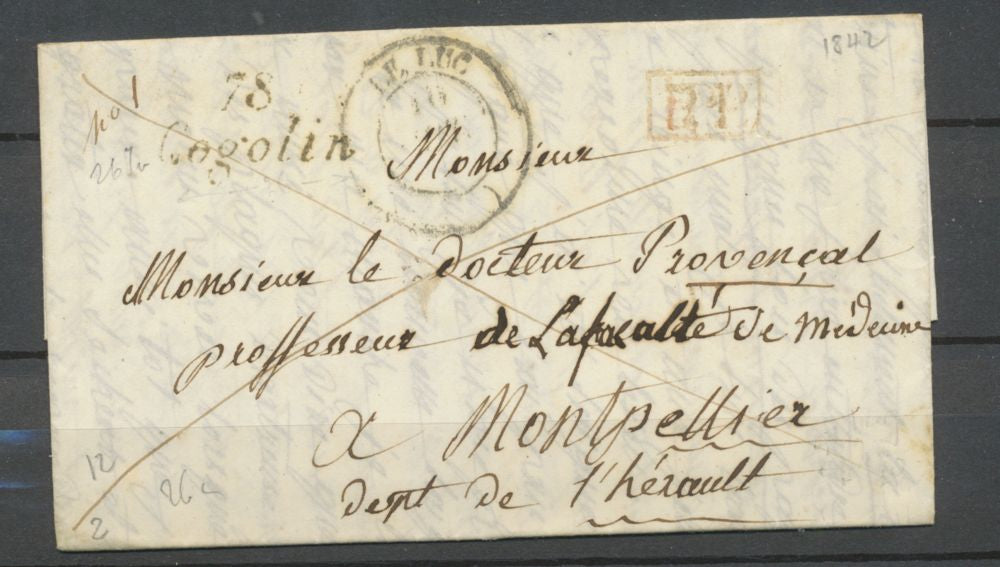 1842
78
Cogolin
LE LUC
P.P.
Monsieur
Monsieur le docteur Provençal
proffesseur de Lafacalté de Médecine
a Montpellier
dept de l'hérault
12
26
2